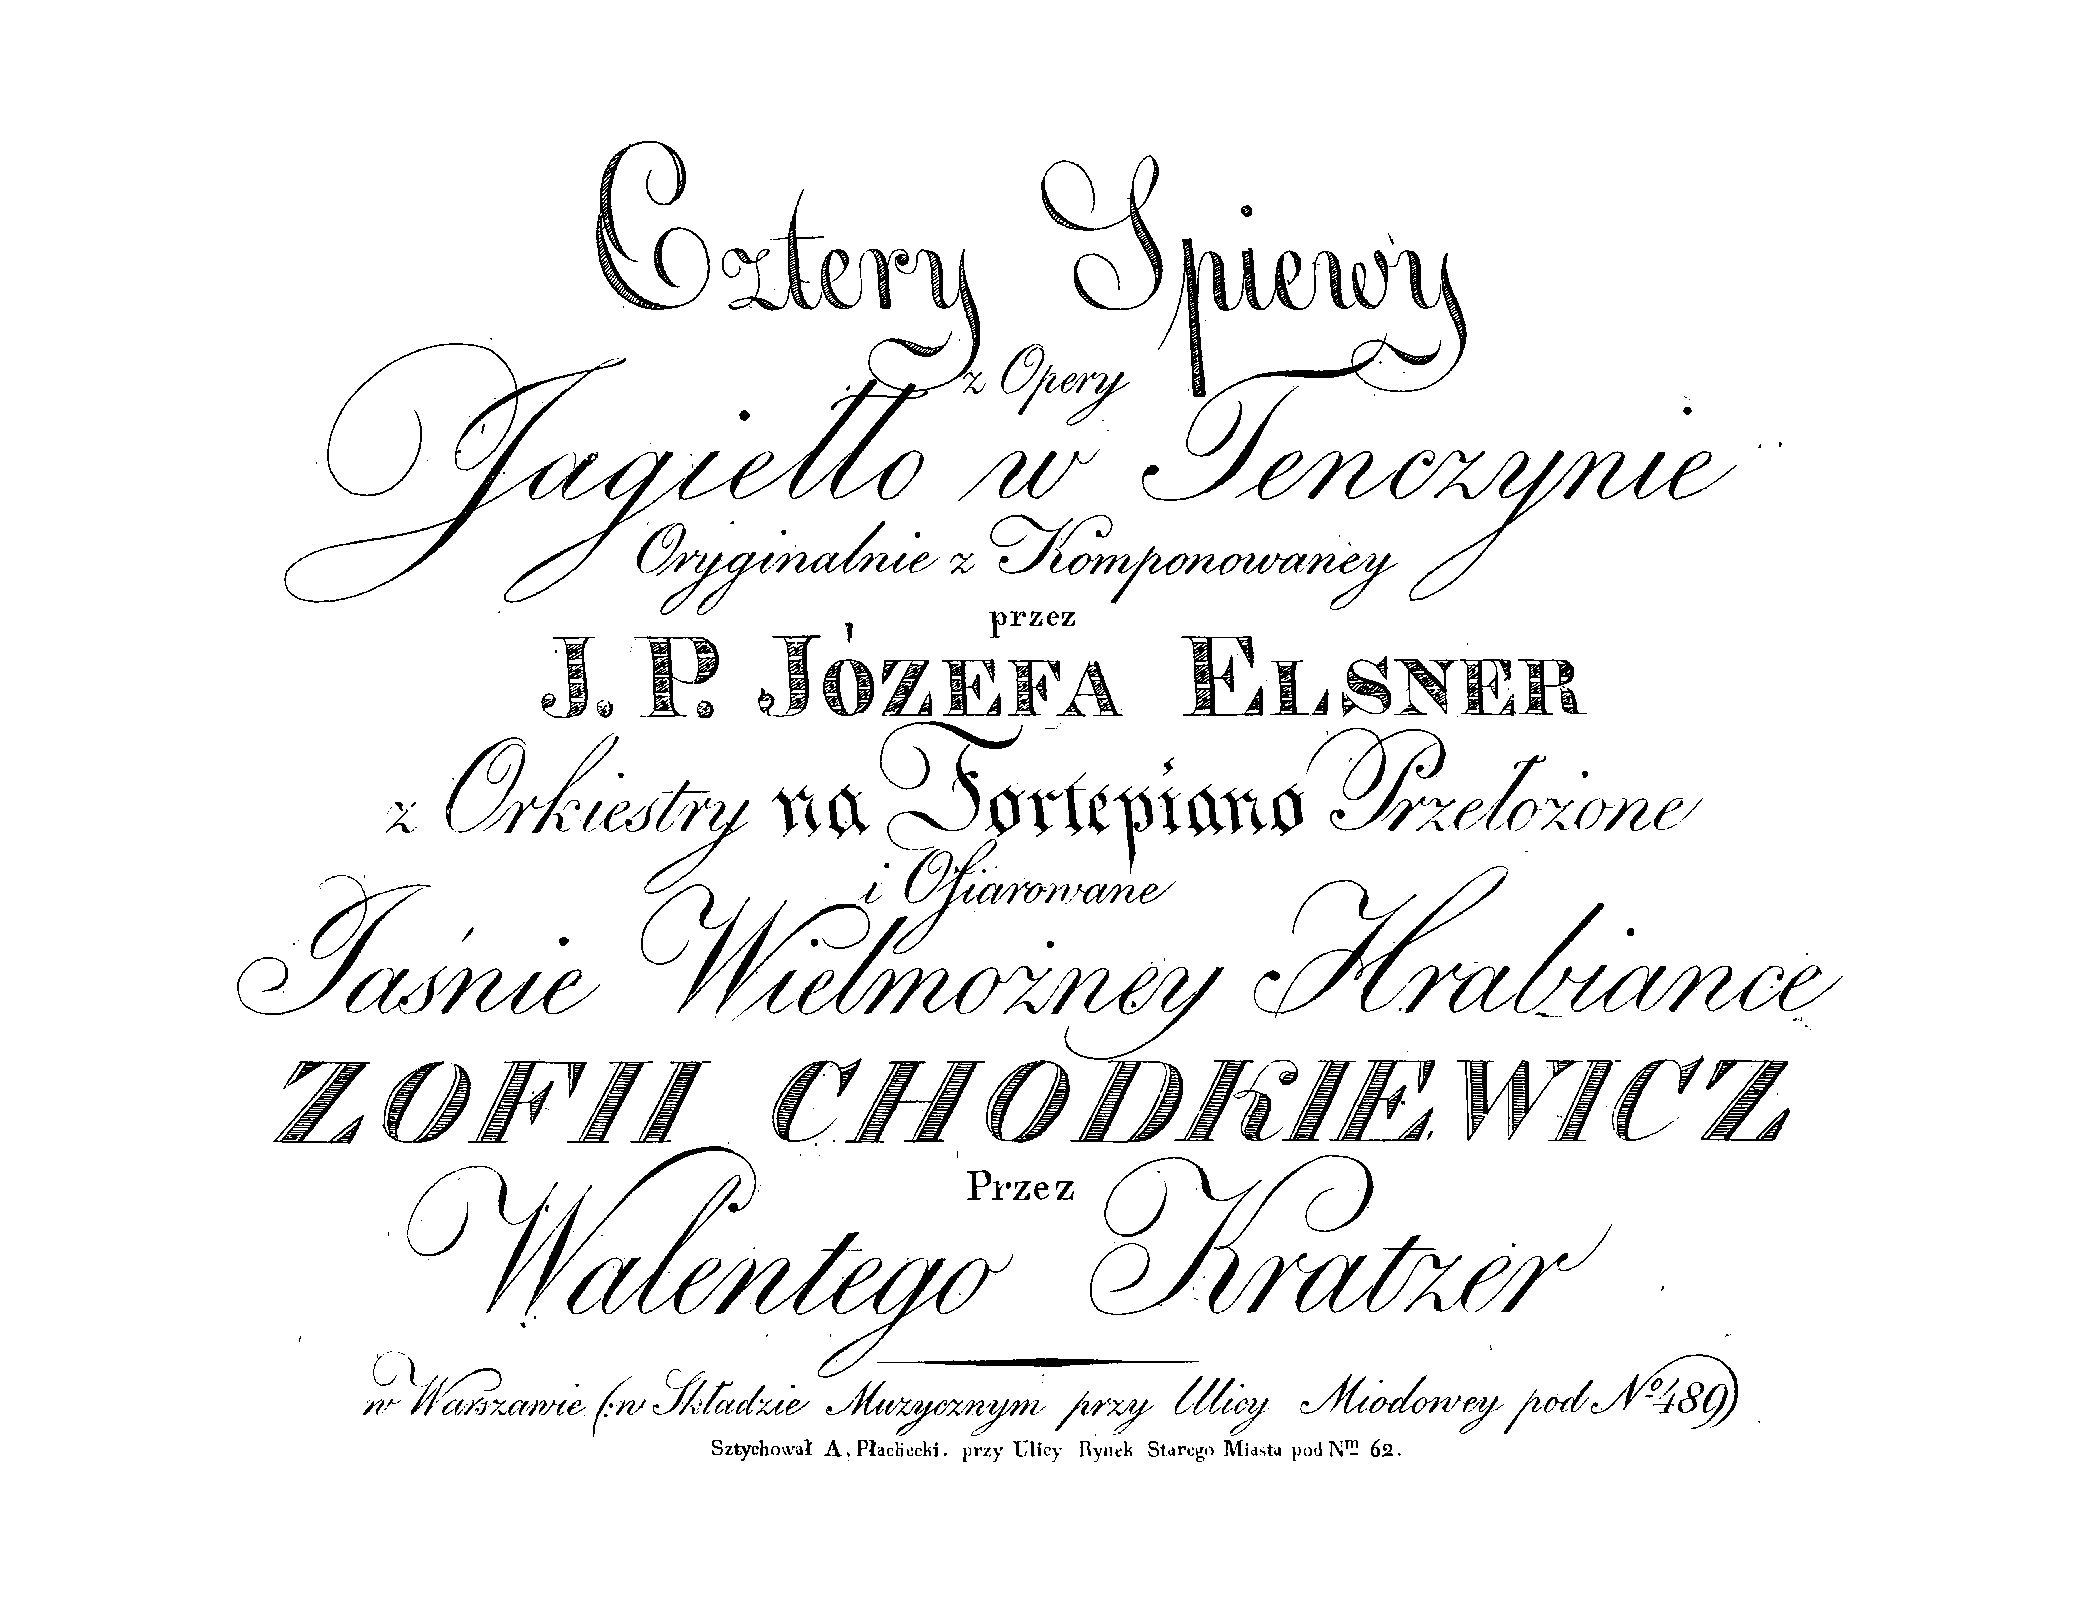 Cztery Spiewy
z Opery
Jagiełło w Tenczynie
Oryginalnie z Komponowaney
przez
J. P. JÓZEFA ELSNER
z Orkiestry na Fortepiano Przełożone
i Ofiarowane
Jaśnie Wielmożney Hrabiance
ZOFII CHODKIEWICZ
Przez
Walentego Kratzer
w Warszawie (:w Składzie Muzycznym przy Ulicy Miodowey pod No 489)
Sztychował A. Płachecki. przy Ulicy Rynek Starego Miasta pod Nm 62.